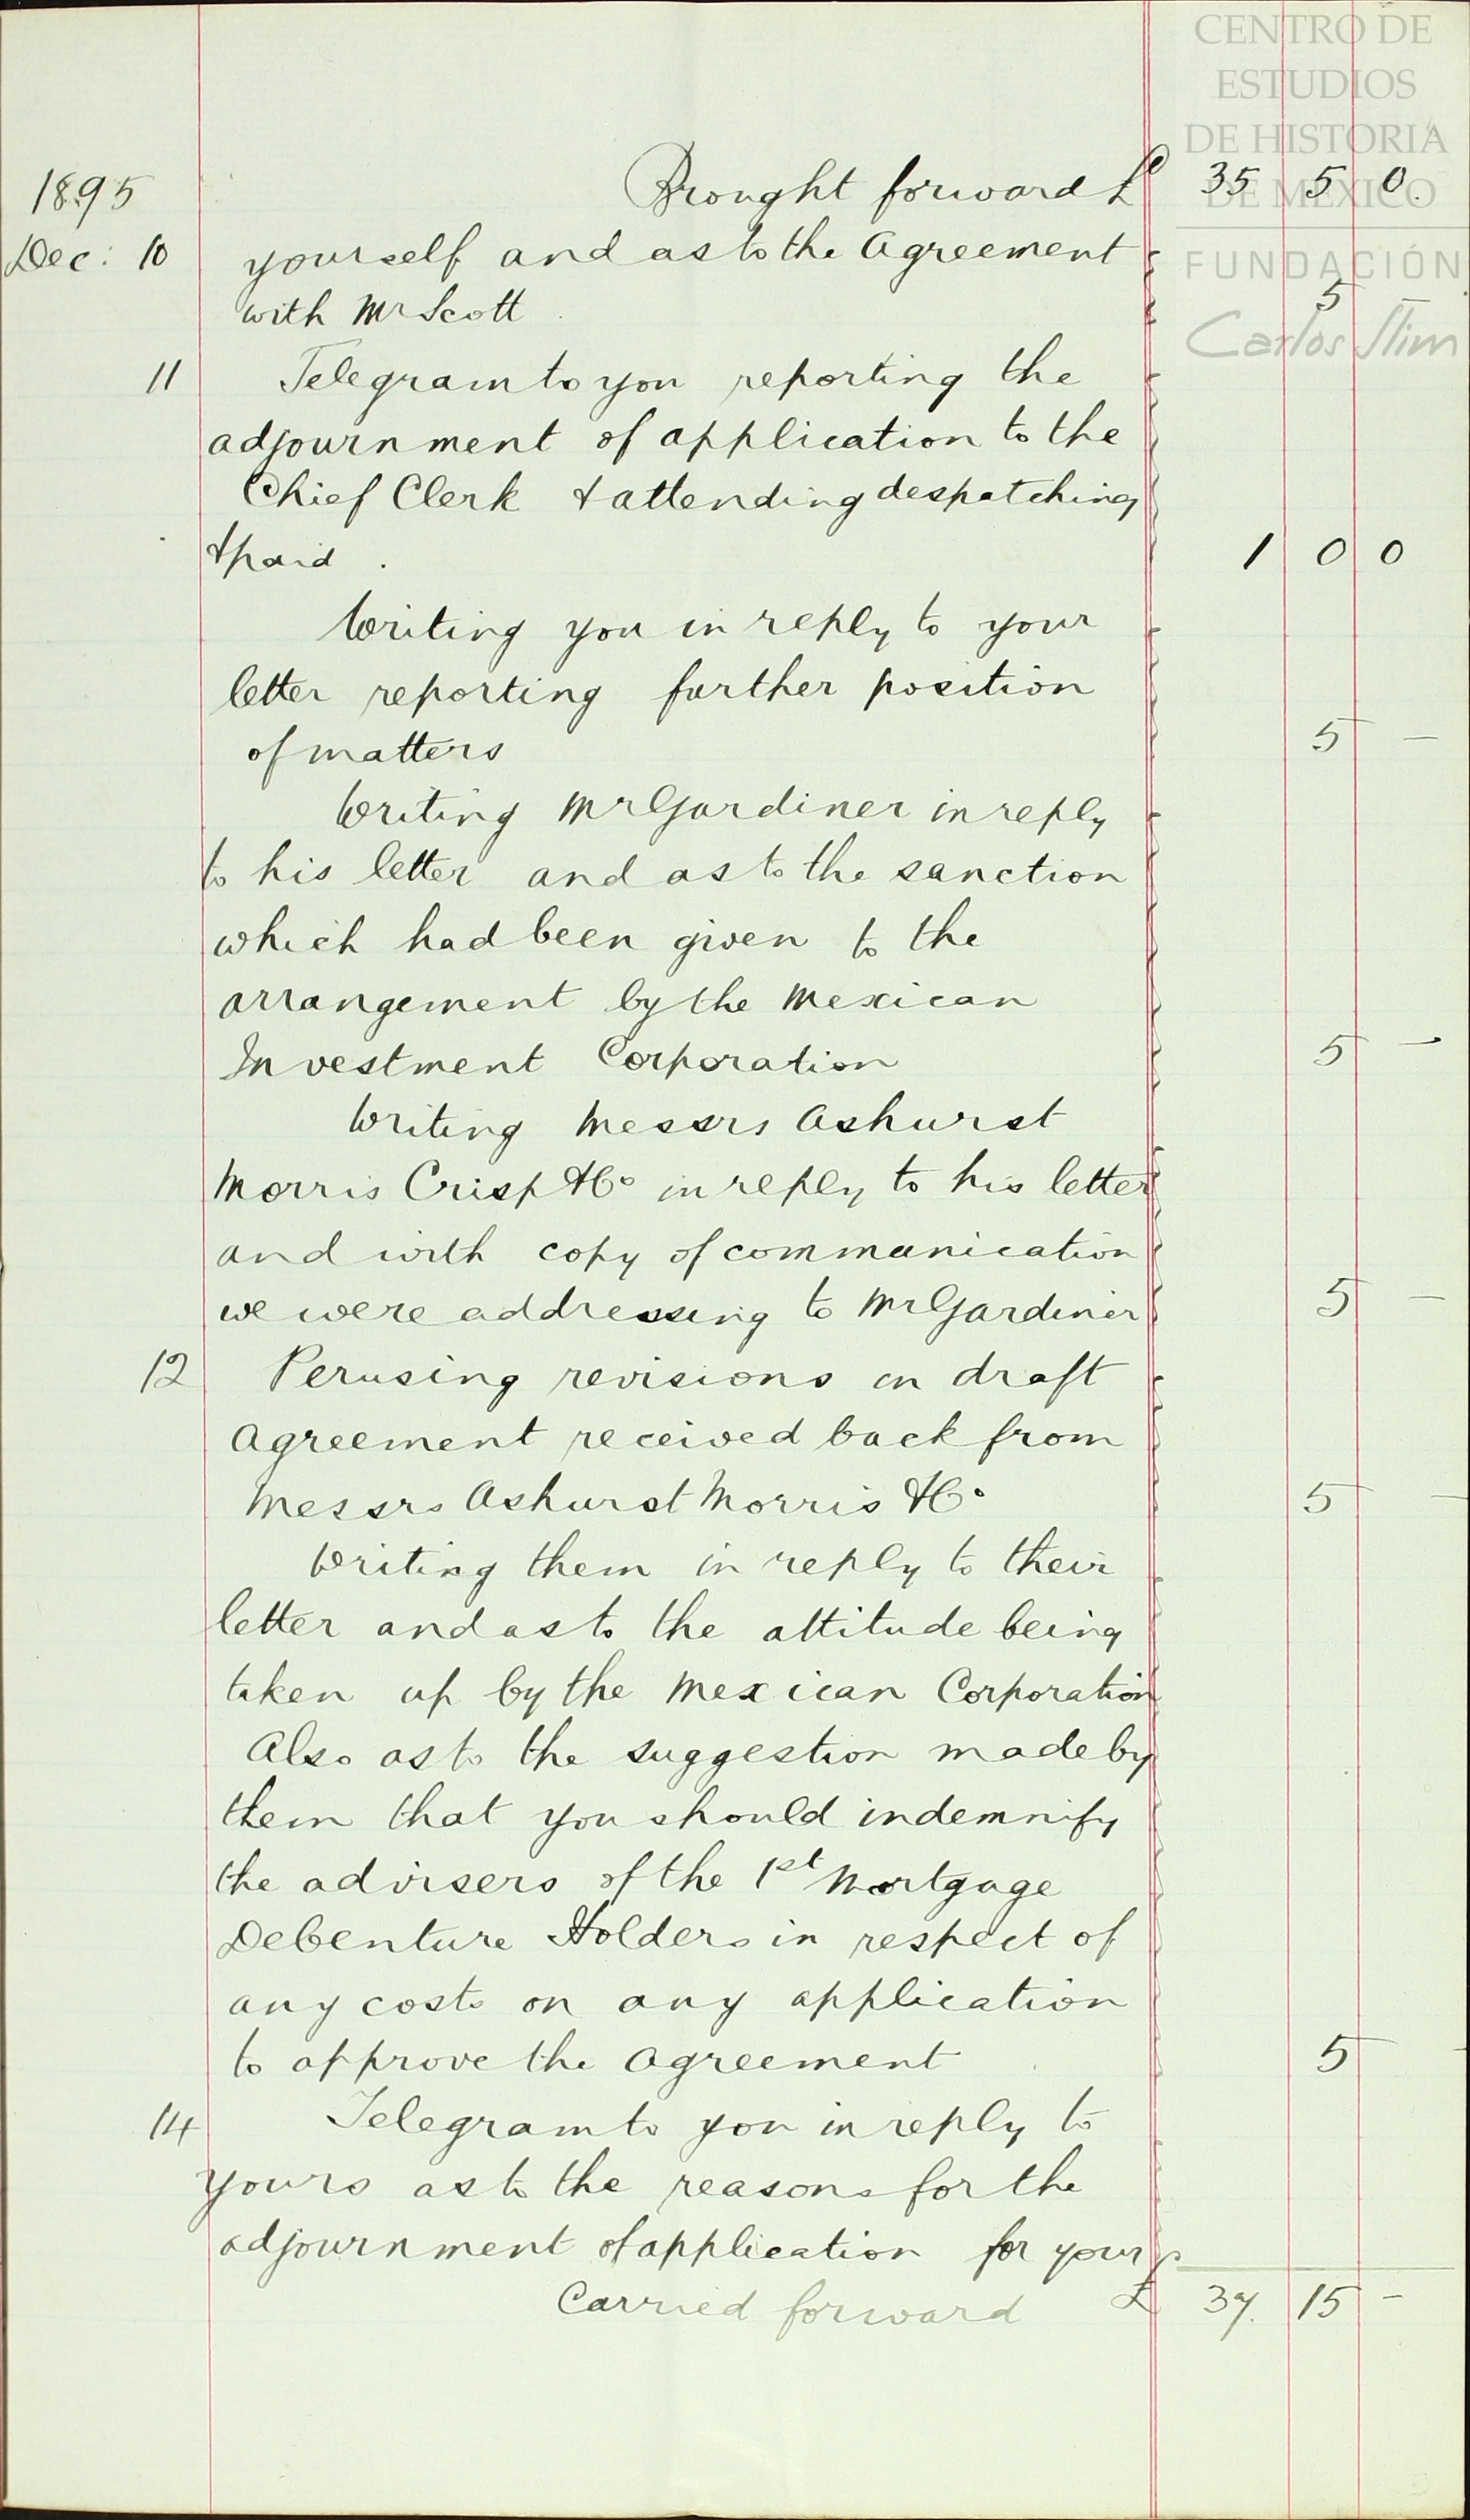 CENTRO DE
ESTUDIOS
DE HISTORIA
DE MEXICO
FUNDACIÓN
Carlos Slim
1895 Brought forward £ 35 5 0.
Dec: 10 yourself and as to the Agreement
with Mr Scott 5 –
11 Telegram to you reporting the
adjournment of application to the
Chief Clerk & attending despatching
& paid . 1 0 0
Writing you in reply to your
letter reporting further position
of matters 5 –
Writing Mr Gardiner in reply
to his letter and as to the sanction
which had been given to the
arrangement by the Mexican
Investment Corporation 5 –
Writing Messrs Ashurst
Morris Crisp & Co in reply to his letter
and with copy of communication
we were addressing to Mr Gardiner 5 –
12 Perusing revisions on draft
Agreement received back from
Messrs Ashurst Morris & Co 5 –
Writing them in reply to their
letter and as to the attitude being
taken up by the Mexican Corporation
Also as to the suggestion made by
them that you should indemnify
the advisers of the 1st Mortgage
Debenture Holders in respect of
any costs on any application
to approve the Agreement 5 -
14 Telegram to you in reply to
yours as to the reasons for the
adjournment of application for your
Carried forward £ 37. 15 –